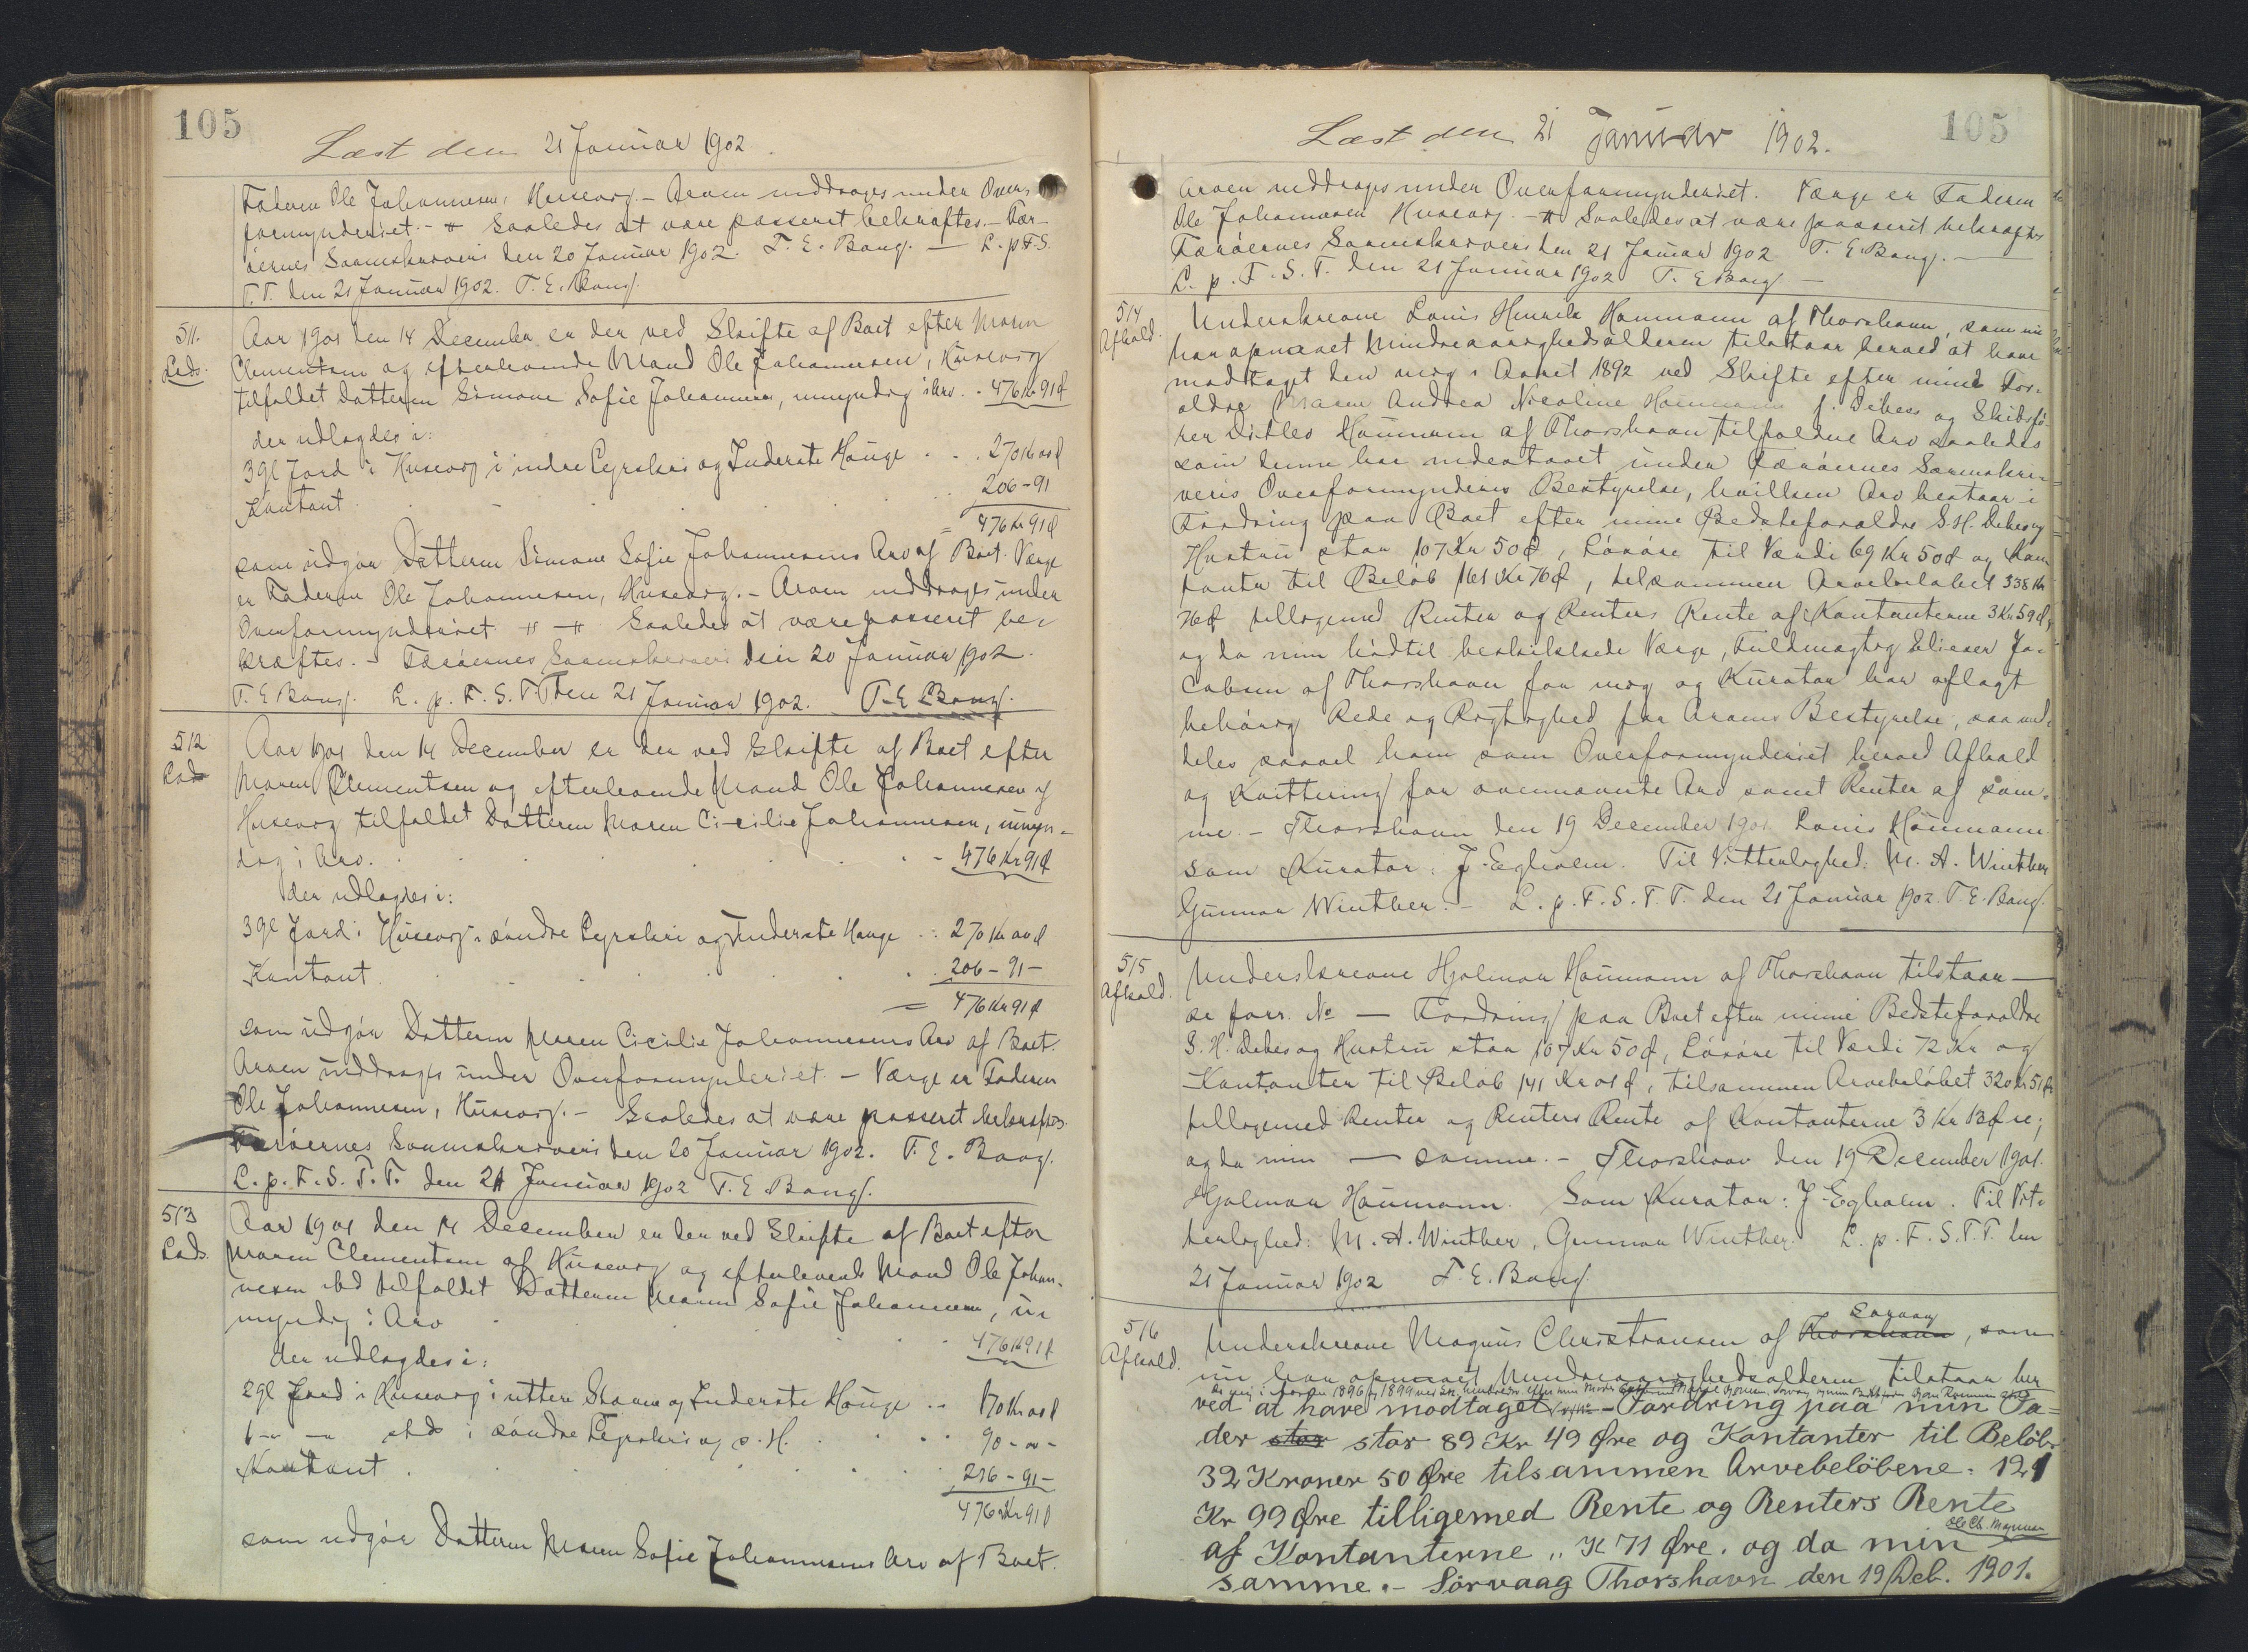 105
Læst den 21 Januar 1902.
Faderen Ole Johannesen, Husevig. - Arven inddrages under Over-
formynderiet. - Saaledes at være passeret bekræftes. - Fær-
öernes Sorenskriveri den 20 Januar 1902. T. E. Bang. - L. p F. S.
T. T. den 21 Januar 1902. T. E. Bang.
511.
Aar 1901 den 14 December er der ved Skifte af Boet efter Maren
Clementsen og efterlevende Mand Ole Johannesen, Husevig
tilfaldet Datteren Simone Sofie Johannesen, umyndig i Arv. . 476 Kr 91 Ø
der udlagdes i:
3 gl Jord i Husevig i indre Lyrskri og Inderste Hauge . . . 270 Kr 00 Ø
Kontant . . . 206 - 91
= 476 Kr 91 Ø
som udgör Datteren Simone Sofie Johannesens Arv af Boet. Værge
er Faderen Ole Johannesen, Husevig. - Arven inddrages under
Overformynderiet - Saaledes at være passeret be-
kræftes. - Færöernes Sorenskriveri den 20 Januar 1902.
T. E. Bang. L. p. F. S. T. T. den 21 Januar 1902. T. E. Bang.
512
Aar 1901 den 14 December er der ved Skifte af Boet efter
Maren Clementsen og efterlevende Mand Ole Johannesen af
Husevig tilfaldet Datteren Maren Cicilie Johannesen, umyn-
dig i Arv. . . . 476 Kr 91 Ø
der udlagdes i:
3 gl Jord i Husevig i söndre Lyrskri og Inderste Hauge . . 270 Kr 00 Ø
Kontant . . . 206 - 91 -
= 476 Kr 91 Ø
som udgör Datteren Maren Cicilie Johannesens Arv af Boet.
Arven inddrages under Overformynderiet. - Værge er Faderen
Ole Johannesen, Husevig. - Saaledes at være passeret bekræftes.
Færöernes Sorenskriveri den 20 Januar 1902. T. E. Bang.
L. p. F. S. T. T. den 21 Januar 1902 T. E. Bang.
513
Aar 1901 den 14 December er der ved Skifte af Boet efter
Maren Clementsen af Husevig og efterlevende Mand Ole Johan-
nesen ibd tilfaldet Datteren Maren Sofie Johannesen, u-
myndig i Arv . . . 476 Kr 91 Ø
der udlagdes i:
2 gl Jord i Husevig i uttere og Inderste Hauge . . 170 Kr 00 Ø
1 - - - stds i söndre Lyrskri og s. H. . . . 90 - 00 -
Kontant . . . 216 - 91 -
476 Kr 91 Ø
som udgör Datteren Maren Sofie Johannesens Arv af Boet.
105
Læst den 21 Januar 1902.
Arven inddrages under Overformynderiet. Værge er Faderen
Ole Johannesen Husevig. - Saaledes at være passeret bekræftes
Færöernes Sorenskriveri den 21 Januar 1902 T. E. Bang. -
L. p. F. S. T. T. den 21 Januar 1902 T. E Bang -
514
Afkald.
Underskrevne Louis Henrik Haumann af Thorshavn, som nu
har opnaaet Mindreaarighedsalderen tilstaar herved at have
modtaget den mig i Aaret 1892 ved Skifte efter mine For-
ældre Maren Andrea Nicoline Haumann f. Debess og Skibsfö-
rer Ditlev Haumann af Thorshavn tilfaldne Arv saaledes
som denne har indestaaet under Færöernes Sorenskri-
veris Overformynderis Bestyrelse, hvilken Arv bestaar i
Fordring paa Boet efter mine Bedsteforældre S. H. Debes og
Hustru stor 107 Kr 50 Ø, Lösöre til Værdi 69 Kr 50 Ø og Kon-
tanter til Belöb 161 Kr 76 Ø, tilsammen Arvebelöbet 338 Kr
76 Ø tilligemed Renter og Renters Rente af Kontanterne 3 Kr 59 Ø,
og da min hidtil beskikkede Værge, Fuldmægtig Elieser Ja-
cobsen af Thorshavn for mig og Kurator har aflagt
behörig Rede og Rigtighed for Arvens Bestyrelse, saa med-
deles saavel ham som Overformynderiet herved Afkald
og Kvittering for ovennævnte Arv samt Renter af sam-
me. - Thorshavn den 19 December 1901 Louis Haumann
som Kurator: J. Egholm. Til Vitterlighed: M. A. Winther
Gunnar Winther. - L. p. F. S. T. T. den 21 Januar 1902. T. E. Bang.
515
Afkald.
Underskrevne Hjalmar Haumann af Thorshavn tilstaar -
se forr. No - Fordring paa Boet efter mine Bedsteforældre
S. H. Debes og Hustru stor 107 Kr 50 Ø, Lösöre til Værdi 72 Kr og
Kontanter til Belöb 141 Kr 01 Ø, tilsammen Arvebelöbet 320 Kr 51 Ø
tilligemed Renter og Renters Rente af Kontanterne 3 Kr 13 Øre;
og da min - samme. - Thorshavn den 19 December 1901.
Hjalmar Haumann. Som Kurator: J. Egholm. Til Vit-
terlighed: M. A. Winther, Gunnar Winther. L. p. F. S. T. T. den
21 Januar 1902 T. E. Bang.
516
Afkald.
Underskrevne Magnus Christiansen af Thorshavn Sørvaag, som
nu har opnaaet Mindreaarighedsalderen tilstaar her-
ved at have modtaget - Fordring paa min Fa-
der stor stor 89 Kr 49 Øre og Kontanter til Belöb
32 Kroner 50 Øre tilsammen Arvebelöbene: 121
Kr 99 Øre tilligemed Rente og Renters Rente
af Kontanterne „ K 71 Øre. og da min
samme. - Sörvaag Thorshavn den 19 Deb. 1901.